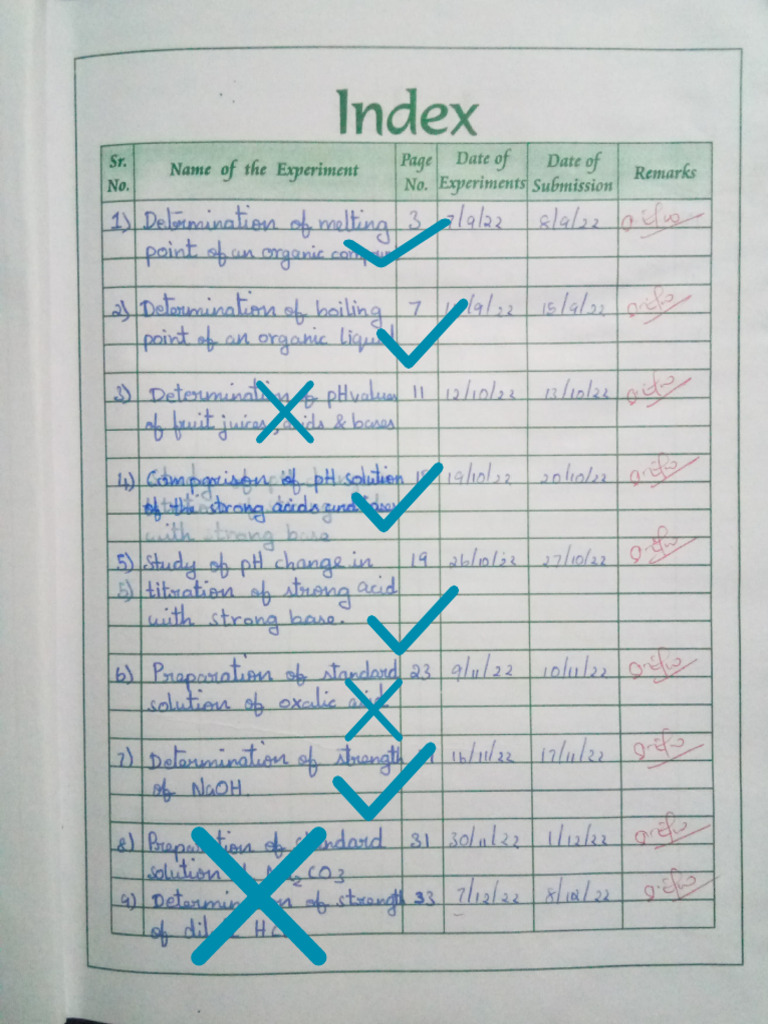 Index
Sr. No. Name of the Experiment Page No. Date of Experiments Date of Submission Remarks
1) Determination of melting 3 7/9/22 8/9/22
point of an organic
2) Determination of boiling 7 /9/22 15/9/22
point of an organic liquid
3) Determination of pH values 11 12/10/22 13/10/22
of fruit juices, acids & bases
4) Comparison of pH solution 19/10/22 20/10/22
of the strong acids and
with strong base
5) Study of pH change in 19 26/10/22 27/10/22
5) titration of strong acid
with strong base.
6) Preparation of standard 23 9/11/22 10/11/22
solution of oxalic acid
7) Determination of strength 16/11/22 17/11/22
of NaOH.
8) Preparation of standard 31 30/11/22 1/12/22
solution CO3
9) Determination of strength 33 7/12/22 8/12/22
of HCl